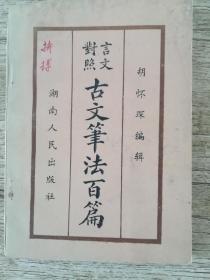 胡怀琛编辑
言文對照
古文筆法百篇
湖南人民出版社